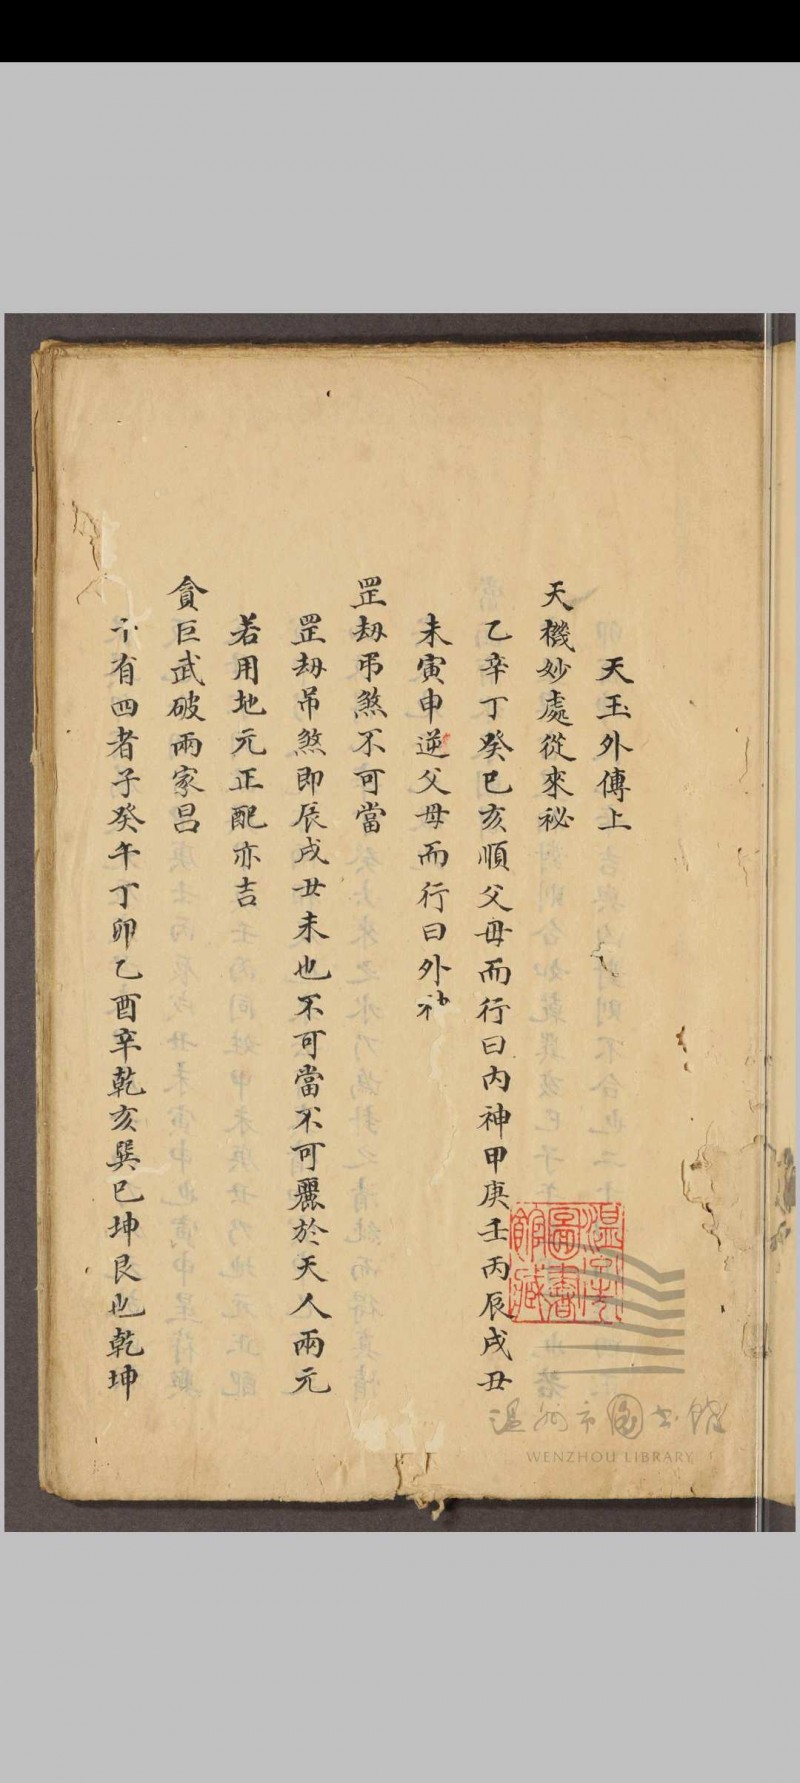 天玉外傳上
天機妙處從來祕
乙辛丁癸巳亥順父母而行曰內神甲庚壬丙辰戌丑
未寅申逆父母而行曰外神
罡刼弔煞不可當
罡刼吊煞即辰戌丑未也不可當不可麗於天人兩元
若用地元正配亦吉
貪巨武破兩家昌
十有四者子癸午丁卯乙酉辛乾亥巽巳坤艮也乾坤
溫州市圖書館藏
温州市图书馆
WENZHOU LIBRARY